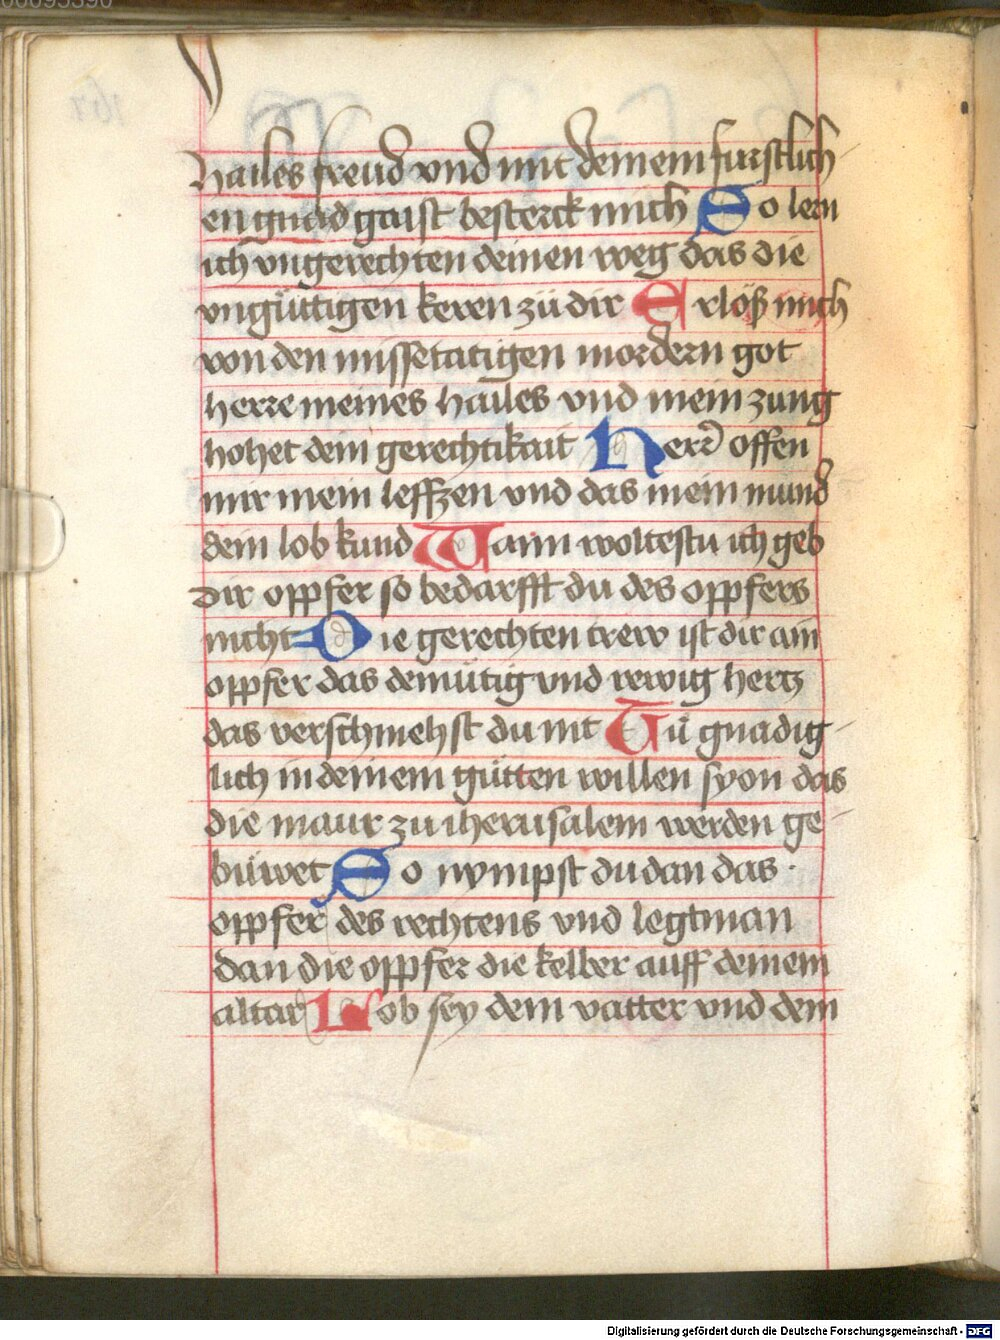 hailes freud vnd mit deinem furstlich
en gnad gaist besterck mich So lern
ich vngerechten deinen weg das die
vngüttigen keren zü dir Erlöß mich
von den missetatigen mordern got
herre meines hailes vnd mein zung
hohet dein gerechtikait Herr offen
mir mein leffzen vnd das mein mund
dein lob kund Wann woltestu ich geb
dir opffer so bedarfft du des opffers
nicht Die gerechten trew ist dir ain
opffer das demütig vnd rewig hertz
das verschmehst du nit Tů gnadig-
lich in deinem gütten willen syon das
die maur zu iherusalem werden ge-
büwet So nympst du dan das
opffer des rechtens vnd legt man
dan die opffer die kelber auff deinem
altar Lob sey dem vatter vnd dem
Digitalisierung gefördert durch die Deutsche Forschungsgemeinschaft - DFG